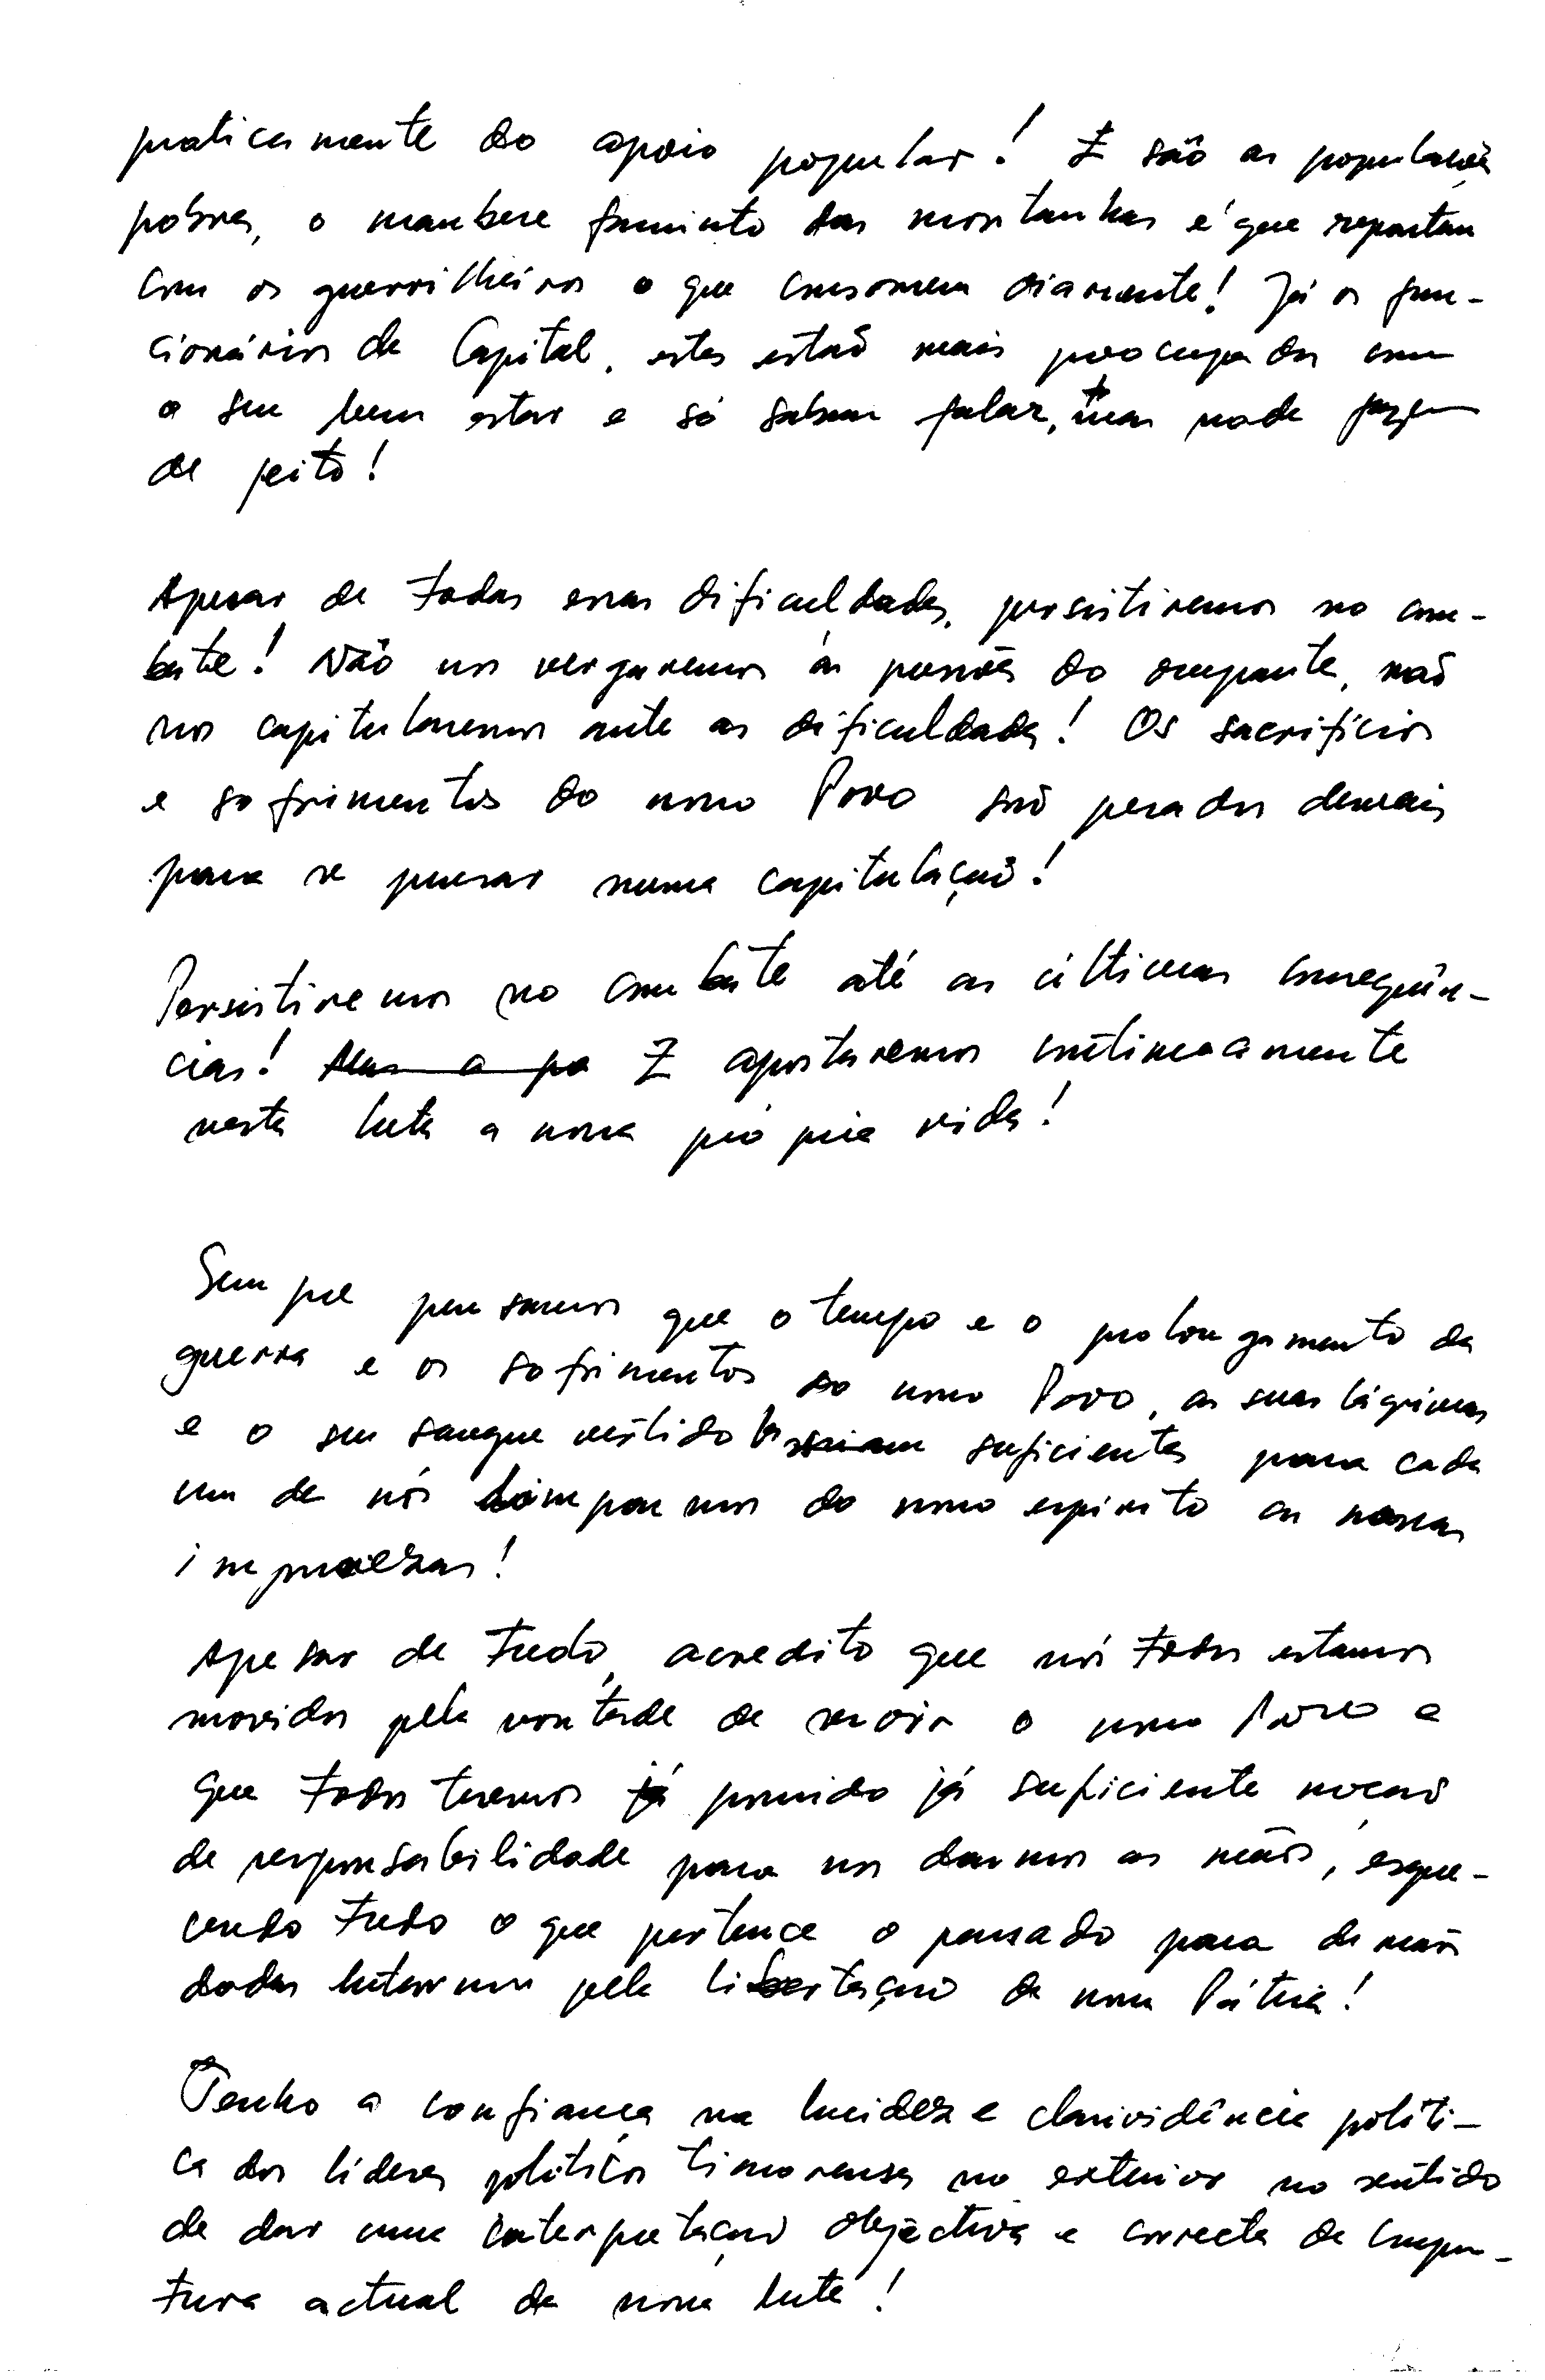 praticamente do apoio popular! E são as populações
pobres, o maubere faminto das montanhas é que repartem
com os guerrilheiros o que consomem diariamente! Já os fun-
cionários da Capital, estes estão mais preocupados com
o seu bem estar e só sabem falar, mas nada fazem
de jeito!
Apesar de todas essas dificuldades, persistiremos no com-
bate! Não nos vergaremos às pressões do ocupante, não
nos capitularemos ante as dificuldades! Os sacrifícios
e sofrimentos do nosso Povo são pesados demais
para se pensar numa capitulação!
Persistiremos no combate até as últimas consequên-
cias! E apostaremos contìnuamente
nesta luta a nossa própria vida!
Sempre pensamos que o tempo e o prolongamento da
guerra e os sofrimentos do nosso Povo, as suas lágrimas
e o seu sangue vertido suficientes para cada
um de nós limparmos do nosso espírito as nossas
impurezas!
Apesar de tudo, acredito que nós todos estamos
movidos pela vontade de servir o nosso Povo e
que todos teremos já possuido já suficiente noção
de responsabilidade para nos darmos as mãos, esque-
cendo tudo o que pertence o passado para de mãos
dadas lutarmos pela libertação da nossa Pátria!
Tenho a confiança na lucidez e clarividência políti-
ca dos líderes políticos timorenses no exterior no sentido
de dar uma interpretação objectiva e correcta da conjun-
tura actual da nossa luta!